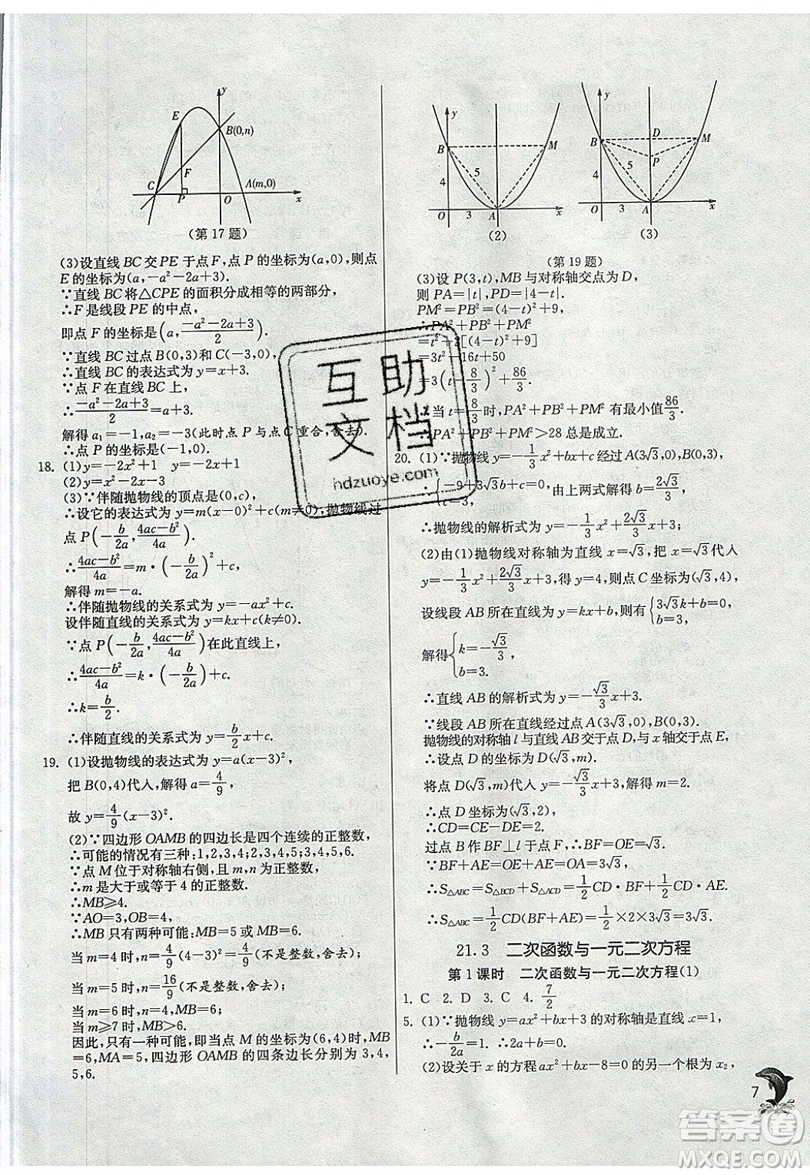 y
E
B(0,n)
F
C
P
O
A(m,0)
x
(第17题)
(3)设直线BC交PE于点F,点P的坐标为(a,0),则点
E的坐标为(a,-a²-2a+3).
∵直线BC将△CPE的面积分成相等的两部分,
∴F是线段PE的中点,
即点F的坐标是(a,(-a²-2a+3)/2).
∵直线BC过点B(0,3)和C(-3,0),
∴直线BC的表达式为y=x+3.
∵点F在直线BC上,
∴(-a²-2a+3)/2=a+3.
解得a₁=-1,a₂=-3(此时点P与点C重合,舍去).
∴点P的坐标是(-1,0).
18. (1)y=-2x²+1 y=-2x+1
(2)y=x²-2x-3
(3)∵伴随抛物线的顶点是(0,c),
∴设它的表达式为y=m(x-0)²+c(m≠0),∵抛物线过
点P(-b/2a,(4ac-b²)/4a).
∴(4ac-b²)/4a=m·(-b/2a)²+c,
解得m=-a.
∴伴随抛物线的关系式为y=-ax²+c.
设伴随直线的关系式为y=kx+c(k≠0).
∵点P(-b/2a,(4ac-b²)/4a)在此直线上,
∴(4ac-b²)/4a=k·(-b/2a)+c.
∴k=b/2.
∴伴随直线的关系式为y=b/2x+c.
19. (1)设抛物线的表达式为y=a(x-3)²,
把B(0,4)代入,解得a=4/9,
故y=4/9(x-3)².
(2)∵四边形OAMB的四边长是四个连续的正整数,
∴可能的情况有三种:1,2,3,4;2,3,4,5;3,4,5,6.
∵点M位于对称轴右侧,且m,n为正整数,
∴m是大于或等于4的正整数.
∴MB≥4.
∵AO=3,OB=4,
∴MB只有两种可能:MB=5或MB=6.
当m=4时,n=4/9(n不是正整数,舍去);
当m=5时,n=16/9(n不是正整数,舍去);
当m=6时,n=4,MB=6;
当m≥7时,MB>6.
因此,只有一种可能,即当点M的坐标为(6,4)时,MB
=6,MA=5,四边形OAMB的四条边长分别为3,4,
5,6.
y
B
M
4
5
O
3
A
x
(2)
y
B
D
M
P
4
5
O
3
A
x
(3)
(第19题)
(3)设P(3,t),MB与对称轴交点为D,
则PA=|t|,PD=|4-t|.
PM²=PB²=(4-t)²+9,
∴PA²+PB²+PM²
=t²+2[(4-t)²+9]
=3t²-16t+50
=3(t-8/3)²+86/3.
∴当t=8/3时,PA²+PB²+PM²有最小值86/3.
∴PA²+PB²+PM²>28总是成立.
20. (1)∵抛物线y=-1/3x²+bx+c经过A(3√3,0),B(0,3),
∴{-9+3√3b+c=0, c=3. 由上两式解得b=2√3/3,
∴抛物线的解析式为y=-1/3x²+2√3/3x+3.
(2)由(1)抛物线对称轴为直线x=√3,把x=√3代入
y=-1/3x²+2√3/3x+3,得y=4,则点C坐标为(√3,4),
设线段AB所在直线为y=kx+b,则有{3√3k+b=0, b=3.
解得{k=-√3/3, b=3.
∴直线AB的解析式为y=-√3/3x+3.
∵线段AB所在直线经过点A(3√3,0),
抛物线的对称轴l与直线AB交于点D,与x轴交于点E,
∴设点D的坐标为D(√3,m).
将点D(√3,m)代入y=-√3/3x+3,解得m=2.
∴点D坐标为(√3,2),
∴CD=CE-DE=2.
过点B作BF⊥l于点F,∴BF=OE=√3.
∵BF+AE=OE+AE=OA=3√3,
∴S△ABC=S△BCD+S△ACD=1/2CD·BF+1/2CD·AE,
∴S△ABC=1/2CD(BF+AE)=1/2×2×3√3=3√3.
21.3 二次函数与一元二次方程
第1课时 二次函数与一元二次方程(1)
1. C 2. D 3. C 4. 7/2
5. (1)∵抛物线y=ax²+bx+3的对称轴是直线x=1,
∴-b/2a=1. ∴2a+b=0.
(2)设关于x的方程ax²+bx-8=0的另一个根为x₂,
7
互助
文档
hdzuoye.com
答案圈
MXQE.COM